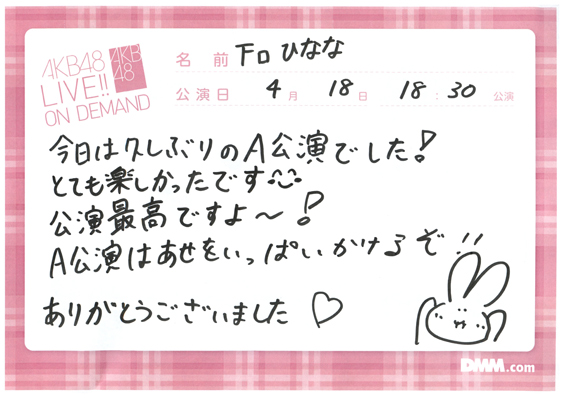 AKB48
LIVE!!
ON DEMAND
AKB
48
名前 下口ひなな
公演日 4月 18日 18:30 公演
今日は久しぶりのA公演でした!
とても楽しかったです
公演最高ですよ〜!
A公演はあせをいっぱいかけるぞ!!
ありがとうございました♡
DMM.com